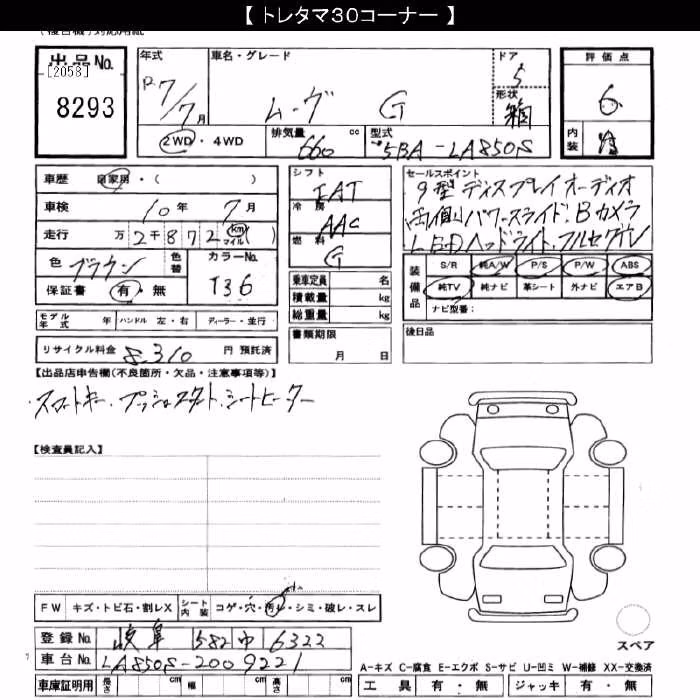 【 トレタマ３０コーナー 】
出品No.
[2058]
8293
年式
R7/7月
車名・グレード
ムーヴ G
ドア
5
形状
箱
評価点
6
内装
2WD・4WD
排気量
660 cc
型式
5BA-LA850S
車歴 自家用・( )
車検 10年 7月
走行 万 2千 8 7 2 (km マイル)
色 ブラウン
色替
カラーNo.
T36
保証書 有・無
シフト
FAT
冷房
AAC
燃料
G
乗車定員 名
積載量 kg
総重量 kg
セールスポイント
9型ディスプレイオーディオ
両側パワースライド、Bカメラ
LEDヘッドライト、フルセグTV
装備品
S/R 純A/W P/S P/W ABS
純TV 純ナビ 革シート 外ナビ エアB
ナビ型番：
モデル年式 年 ハンドル 左・右 ディーラー・並行
書類期限
月 日
後日品
リサイクル料金 8,310 円 預託済
【出品店申告欄(不良箇所・欠品・注意事項等)】
・スマートキー、プッシュスタート、シートヒーター
【検査員記入】
FW キズ・トビ石・割レX シート内装 コゲ・穴・汚レ・シミ・破レ・スレ
小
登録No. 岐阜 582 や 6322
車台No. LA850S-2009221
車庫証明用 長さ cm 幅 cm 高さ cm
スペア
A-キズ C-腐食 E-エクボ S-サビ U-凹ミ W-補修 XX-交換済
工具 有・無 ジャッキ 有・無